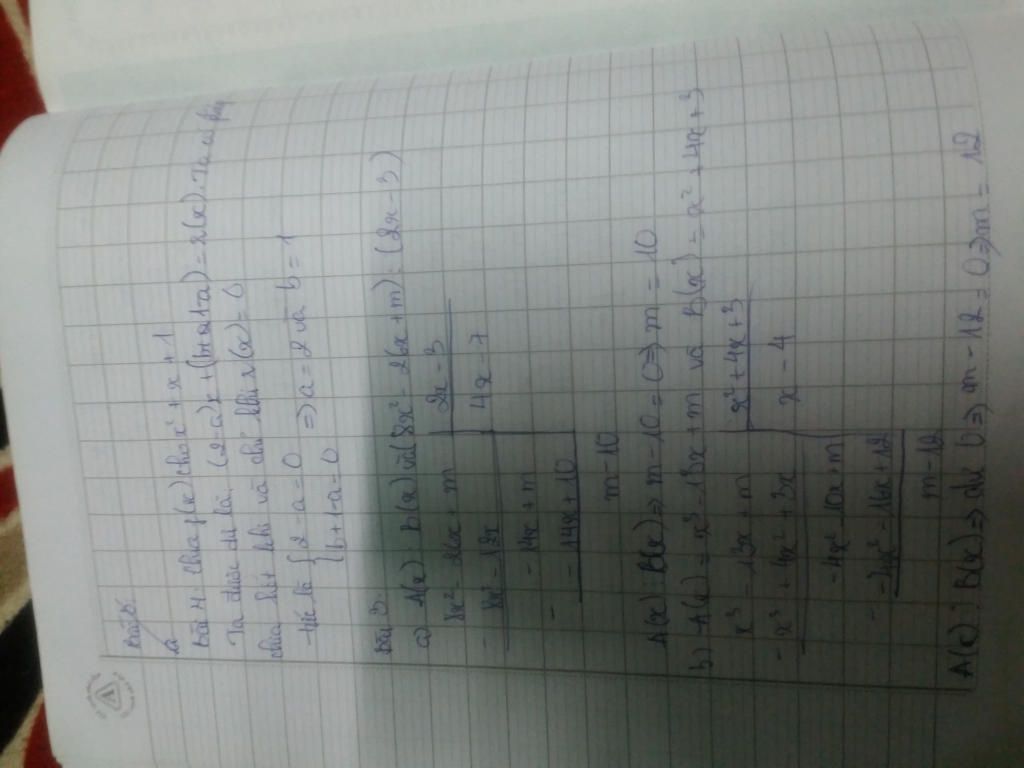 Bài 5:
a
Bài 4: Chia f(x) cho x² + x + 1
Ta được dư là: (2-a)x + (b+1-a) = r(x). Ta có f(x)
chia hết khi và chỉ khi r(x) = 0
tức là { 2 - a = 0
{ b + 1 - a = 0 => a = 2 và b = 1
Bài 3:
a) A(x) : B(x) và (8x² - 26x + m) : (2x - 3)
8x² - 26x + m | 2x - 3
- 8x² - 12x | 4x - 7
- 14x + m
- - 14x + 10
m - 10
A(x) : B(x) => m - 10 = 0 => m = 10
b) A(x) = x³ - 13x + m và B(x) = x² + 4x + 3
x³ - 13x + m | x² + 4x + 3
- x³ + 4x² + 3x | x - 4
- 4x² - 16x + m
- - 4x² - 16x + 12
m - 12
A(x) : B(x) => dư 0 => m - 12 = 0 => m = 12